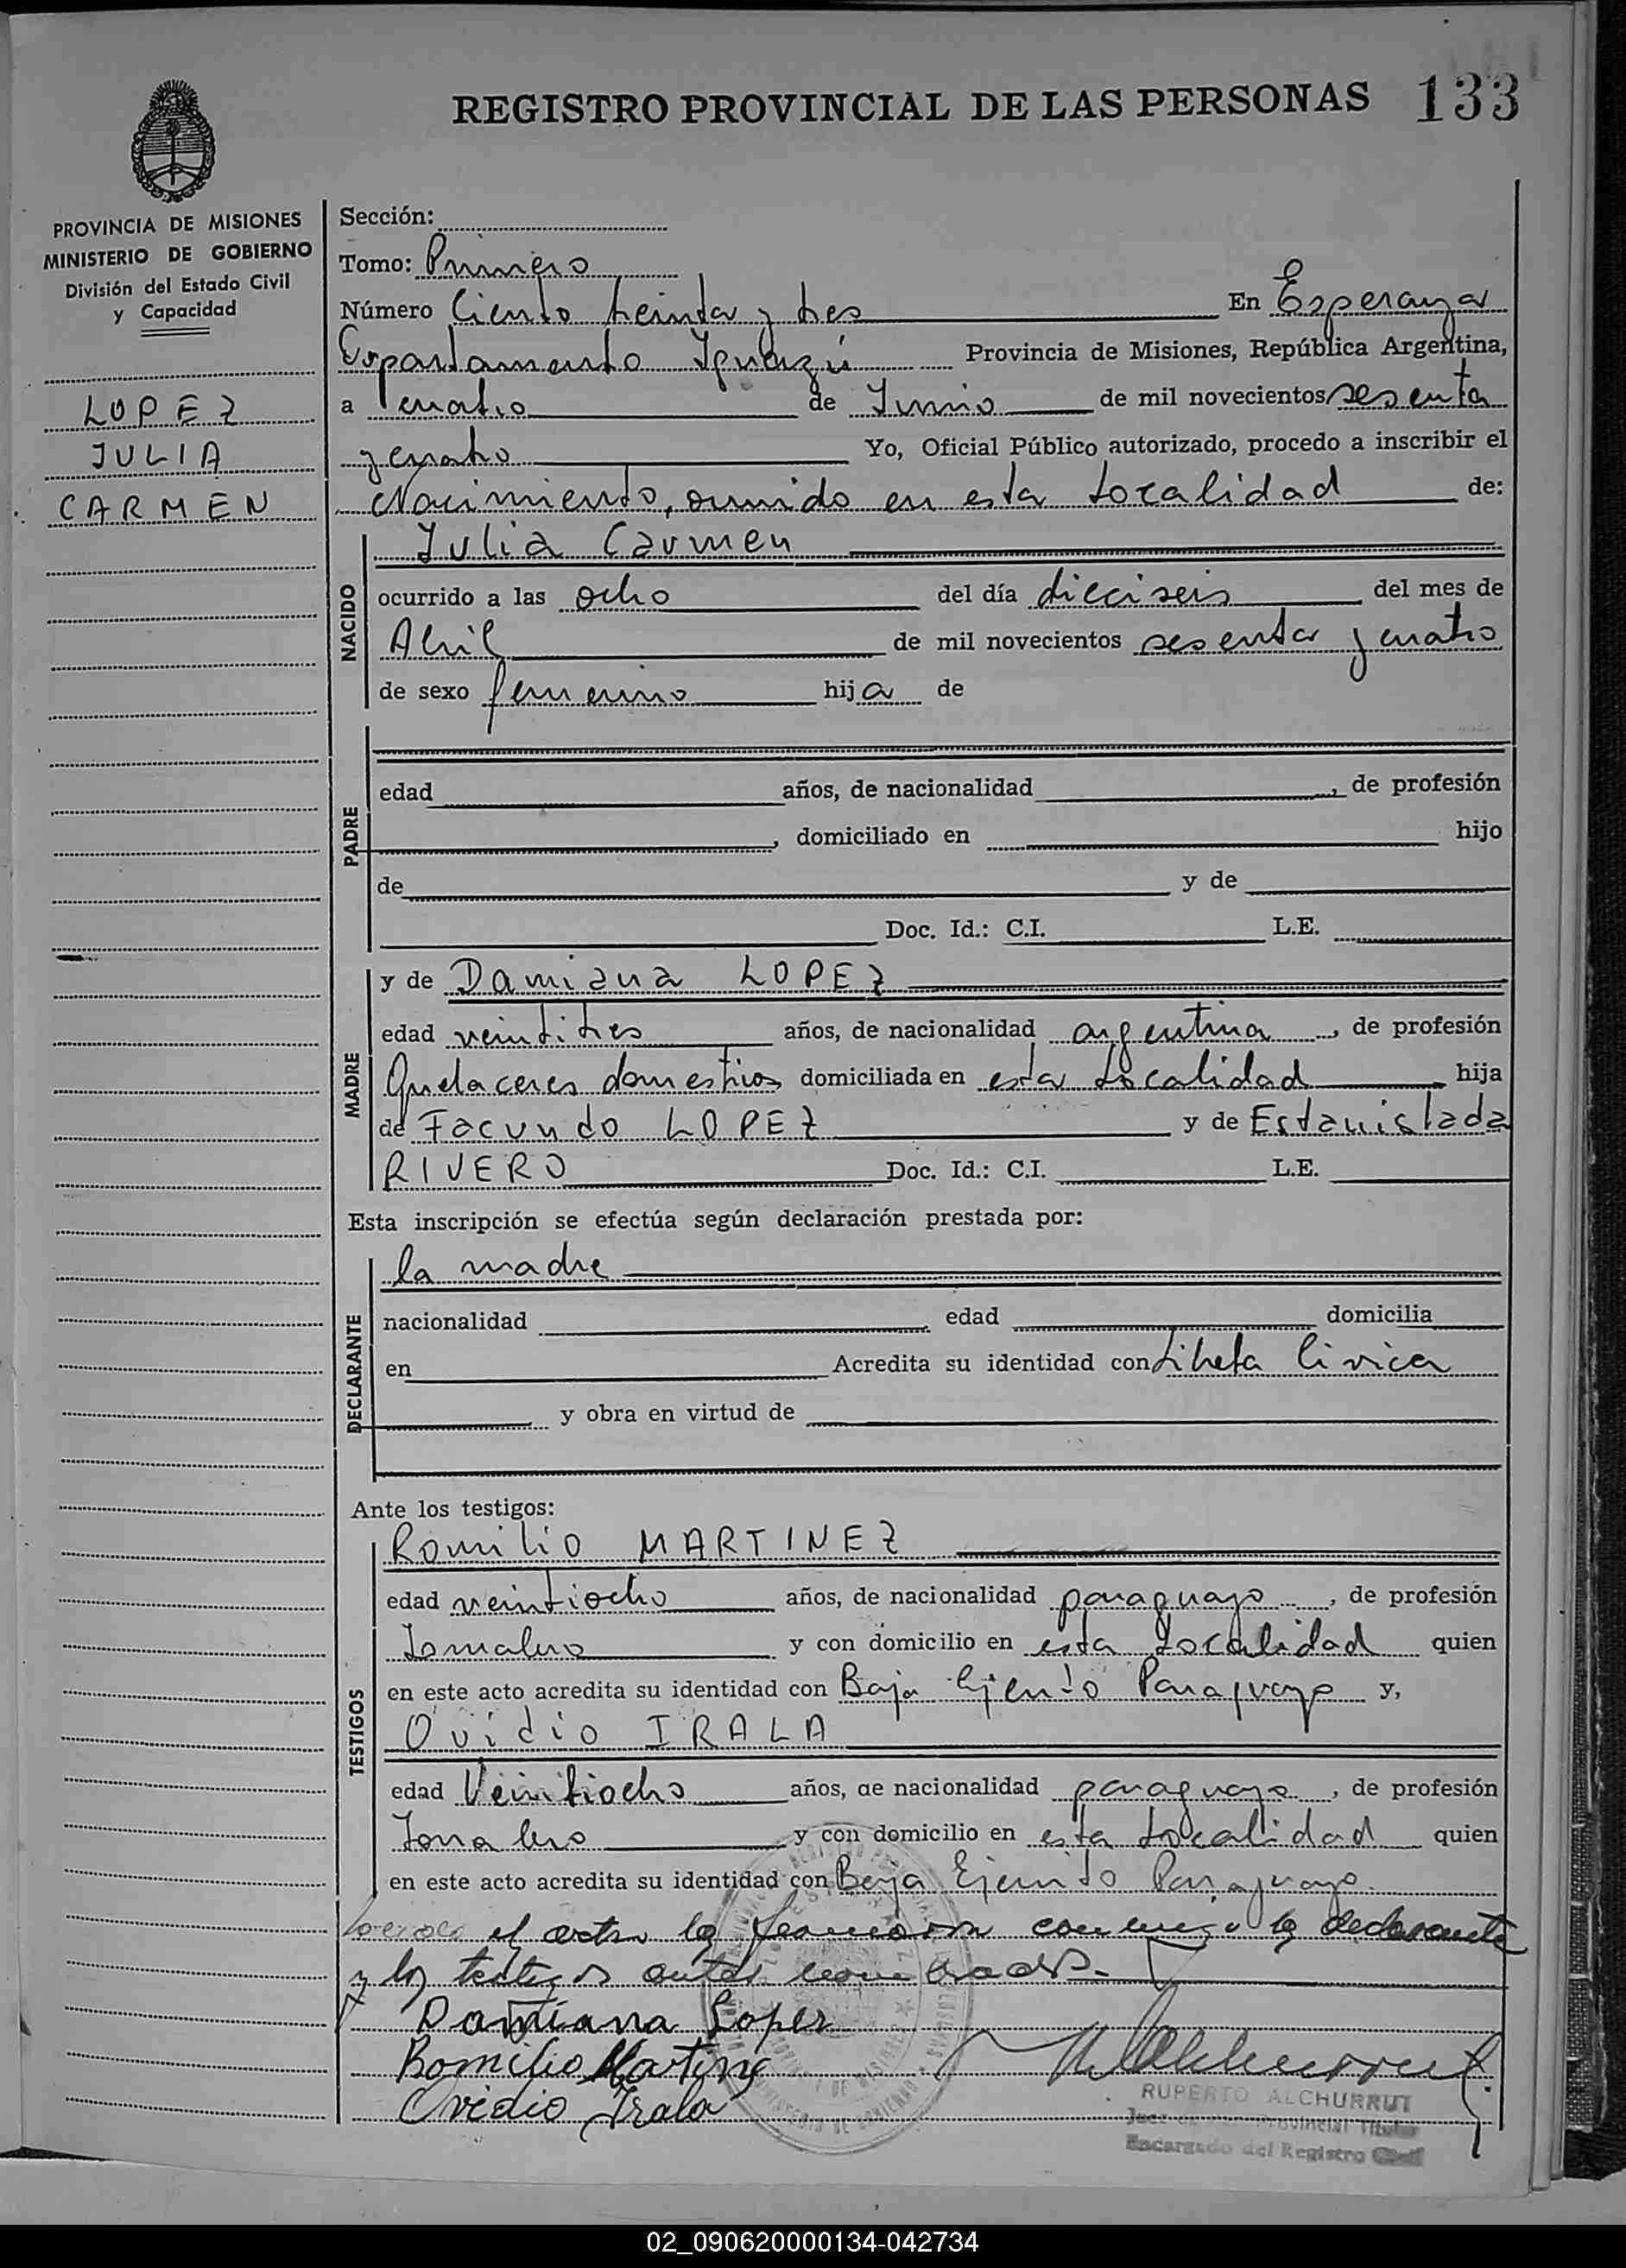 REGISTRO PROVINCIAL DE LAS PERSONAS 133
PROVINCIA DE MISIONES
MINISTERIO DE GOBIERNO
División del Estado Civil
y Capacidad
LOPEZ
JULIA
CARMEN
Sección:
Tomo: Primero
Número Ciento treinta y tres En Esperanza
Departamento Iguazú Provincia de Misiones, República Argentina,
a cuatro de Junio de mil novecientos sesenta
y cuatro Yo, Oficial Público autorizado, procedo a inscribir el
Nacimiento, ocurrido en esta Localidad de:
NACIDO
Julia Carmen
ocurrido a las ocho del día dieciseis del mes de
Abril de mil novecientos sesenta y cuatro
de sexo femenino hija de
PADRE
edad años, de nacionalidad , de profesión
, domiciliado en hijo
de y de
Doc. Id.: C.I. L.E.
MADRE
y de Damiana LOPEZ
edad veintitres años, de nacionalidad argentina , de profesión
Quehaceres domesticos domiciliada en esta Localidad hija
de Facundo LOPEZ y de Estanislada
RIVERO Doc. Id.: C.I. L.E.
Esta inscripción se efectúa según declaración prestada por:
DECLARANTE
la madre
nacionalidad edad domicilia
en Acredita su identidad con Libreta Civica
y obra en virtud de
Ante los testigos:
TESTIGOS
Romilio MARTINEZ
edad veintiocho años, de nacionalidad paraguayo , de profesión
Jornalero y con domicilio en esta Localidad quien
en este acto acredita su identidad con Baja Ejercito Paraguayo y,
Ovidio IRALA
edad Veintiocho años, de nacionalidad paraguayo , de profesión
Jornalero y con domicilio en esta Localidad quien
en este acto acredita su identidad con Baja Ejercito Paraguayo.
el acta la conmigo la declarante
y los testigos antes nombrados.-
Damiana Lopez
Romilio Martinez
Ovidio Irala
RUPERTO ALCHURRUT
Juez de Paz Provincial Titular
Encargado del Registro Civil
02_090620000134-042734